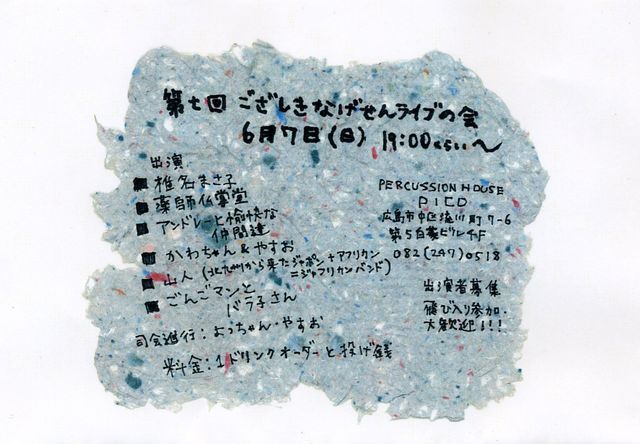 第七回 ござしきなげせんライブの会
6月7日(日) 19:00くらい〜
出演
■ 椎名まさ子
■ 薬師仏掌堂
■ アンドレーと愉快な
仲間達
■ かわちゃん&やすお
■ 山人(北九州から来たジャポン+アフリカン
=ジャフリカンバンド)
■ ごんごマンと
バラ子さん
司会進行:よっちゃん・やすお
料金:1ドリンクオーダーと投げ銭
PERCUSSION HOUSE
PICO
広島市中区流川町7-6
第5白菱ビル4F
082(247)0518
出演者募集
飛び入り参加.
大歓迎!!!